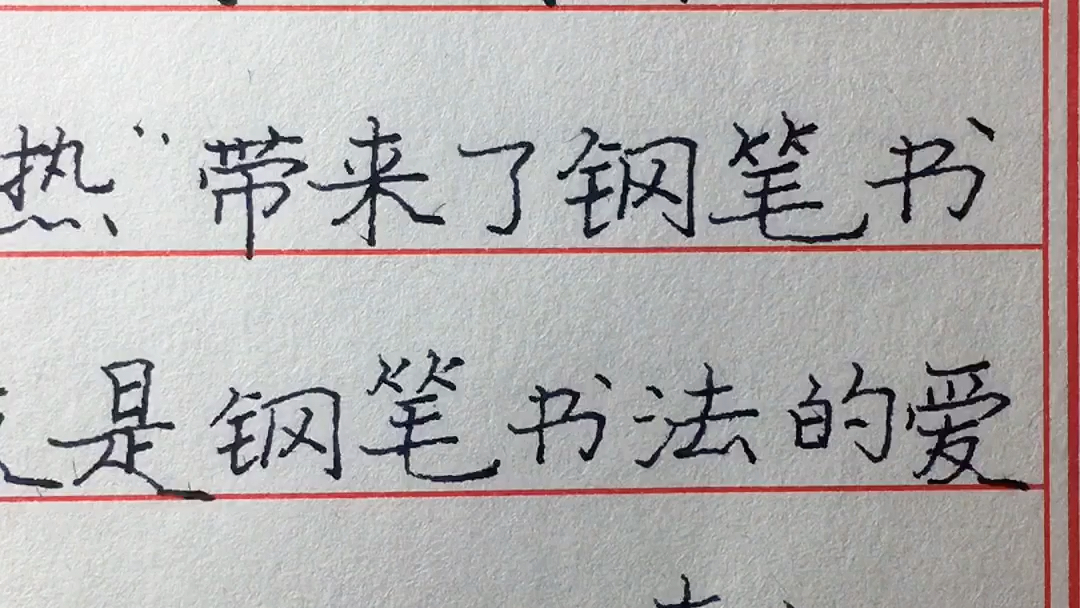 热”带来了钢笔书
是钢笔书法的爱